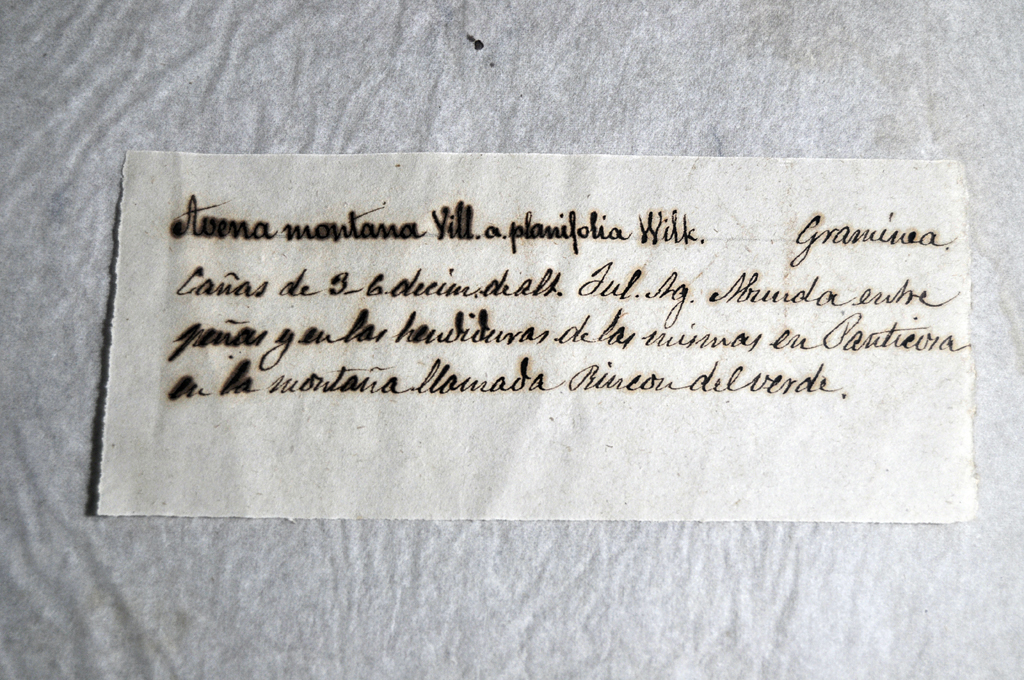 Avena montana Vill. a. planifolia Wilk. Gramínea.
Cañas de 3-6 decim. de alt. Jul. Ag. Abunda entre
peñas y en las hendiduras de las mismas en Panticosa
en la montaña llamada Rincon del verde.